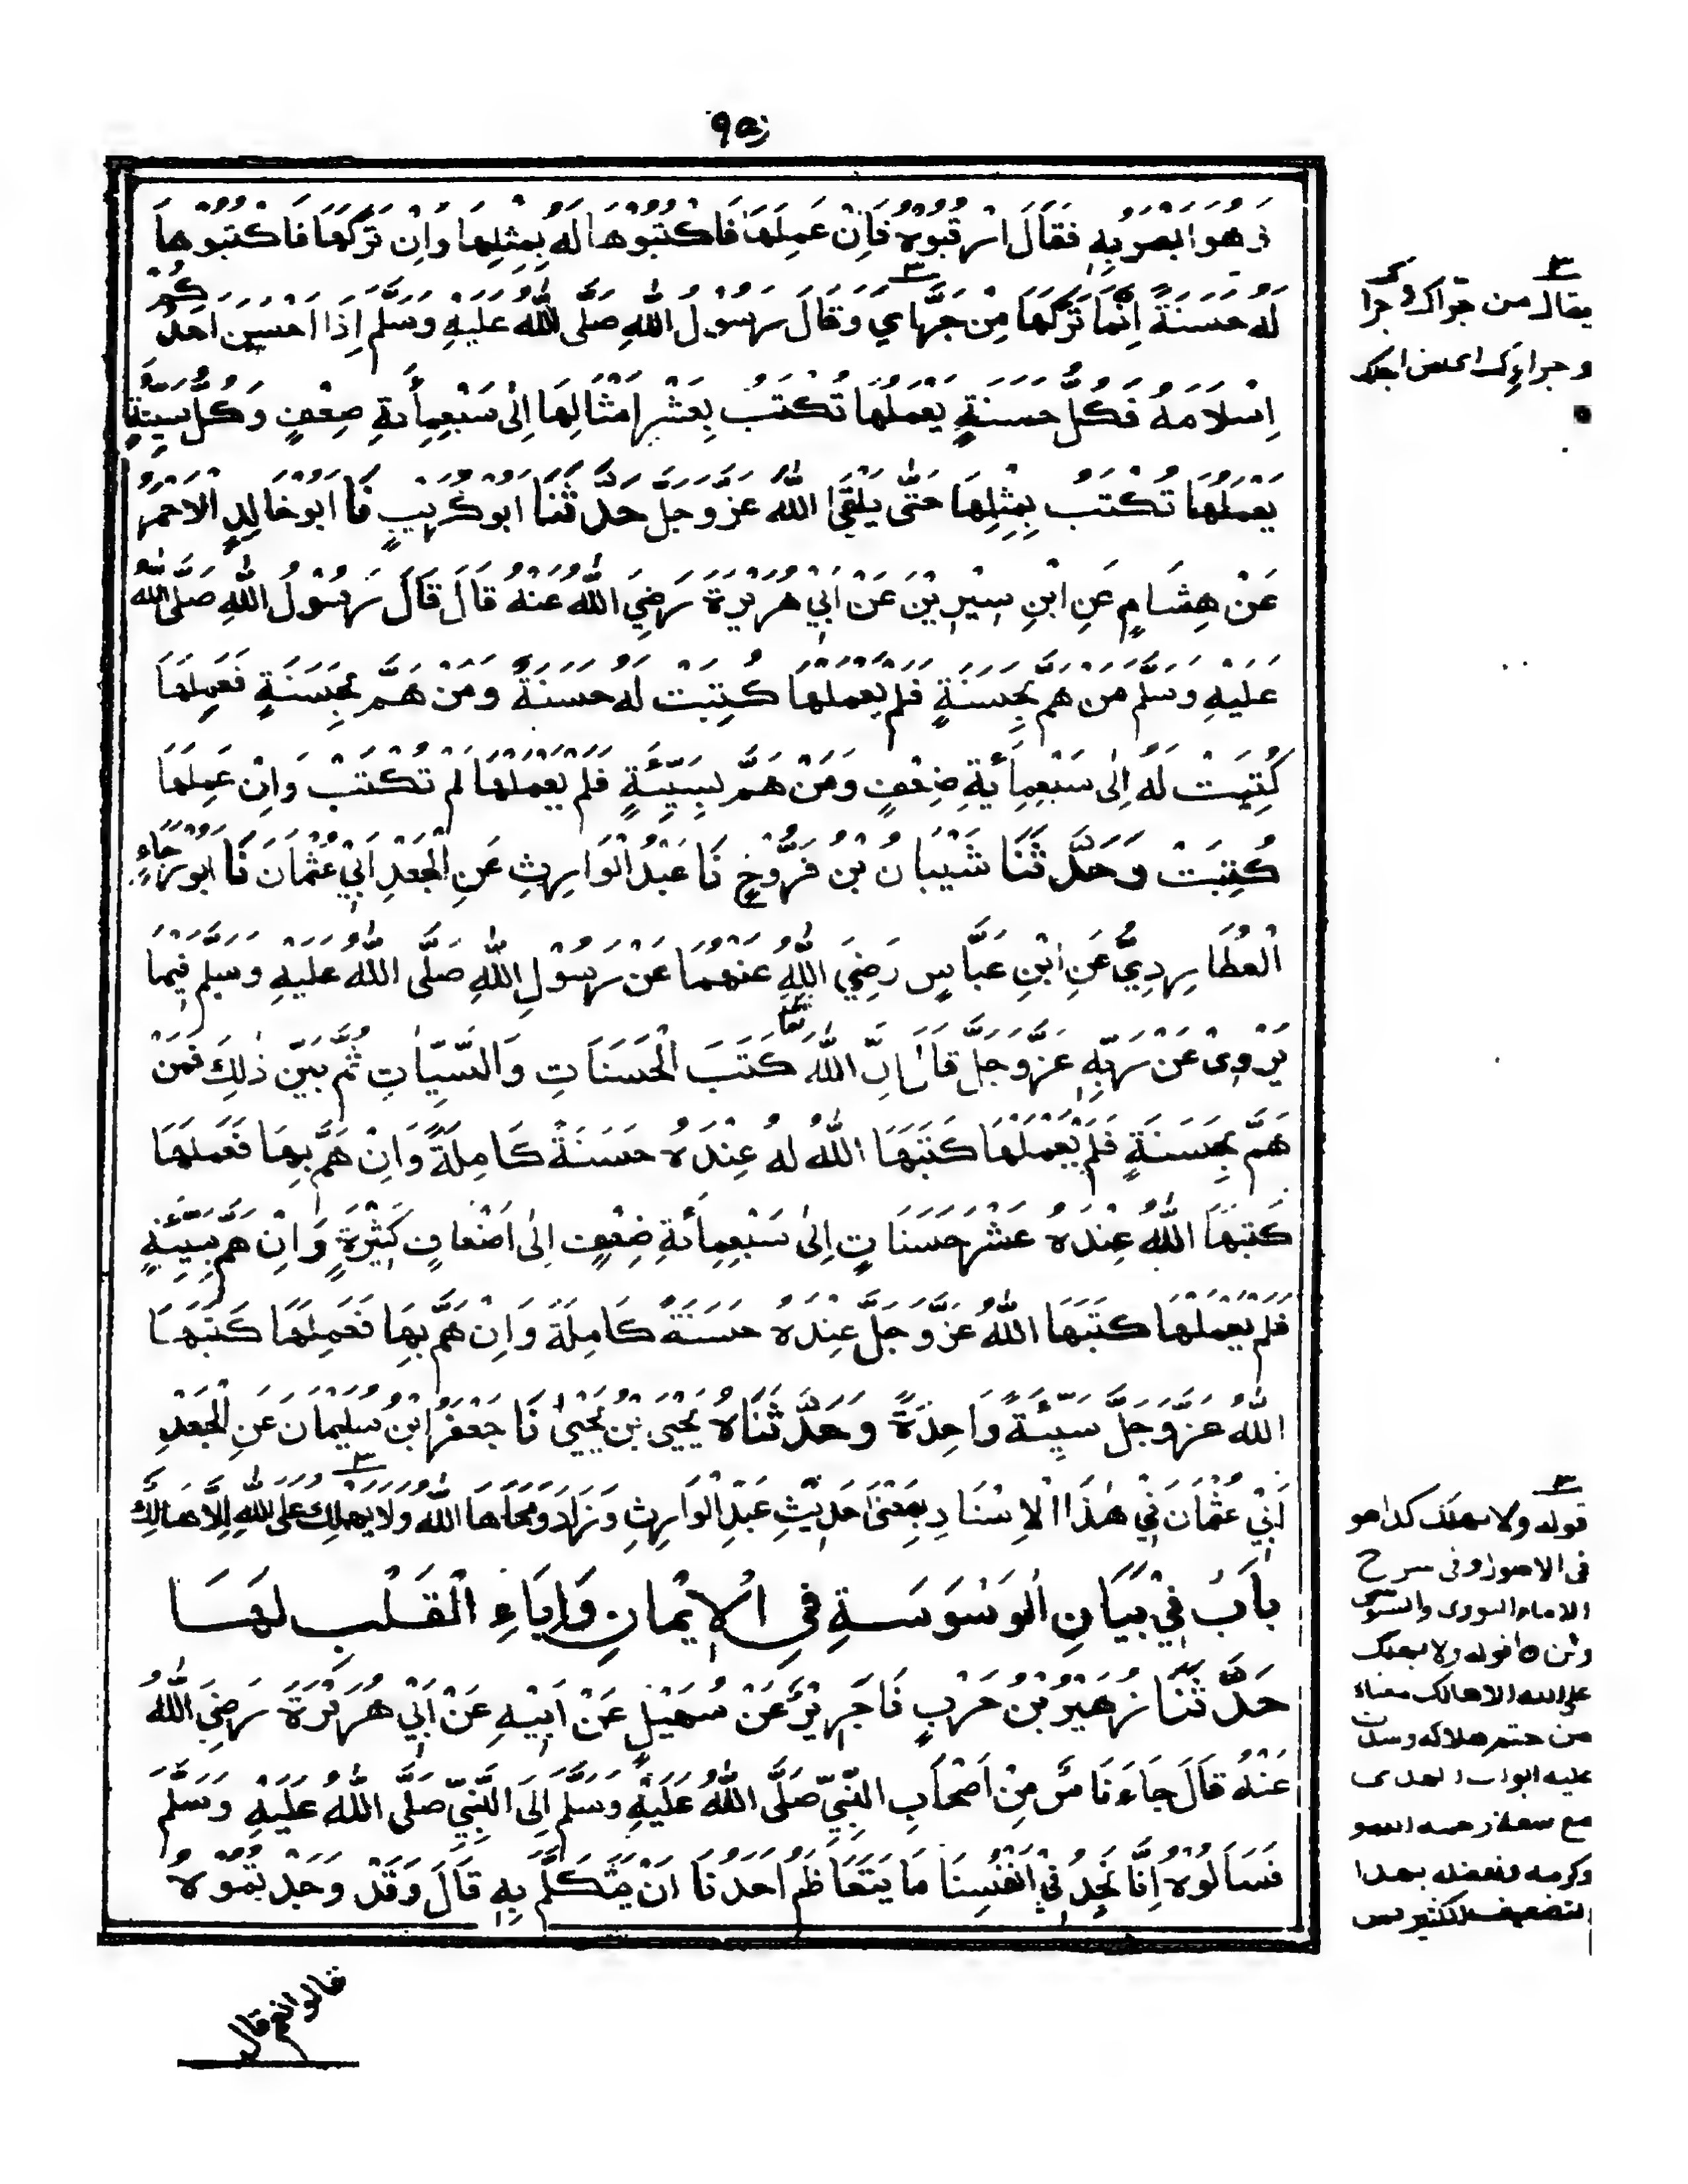 وَهُوَ اَبْصَرُ بِهٖ فَقَالَ ارْقُبُوْهُ فَاِنْ عَمِلَهَا فَاكْتُبُوْهَا لَهُ بِمِثْلِهَا وَاِنْ تَرَكَهَا فَاكْتُبُوْهَا
لَهُ حَسَنَةً اِنَّمَا تَرَكَهَا مِنْ جَرَّايَ وَقَالَ رَسُوْلُ اللهِ صَلَّى اللهُ عَلَيْهِ وَسَلَّمَ اِذَا اَحْسَنَ اَحَدُكُمْ
اِسْلَامَهُ فَكُلُّ حَسَنَةٍ يَعْمَلُهَا تُكْتَبُ بِعَشْرِ اَمْثَالِهَا اِلٰى سَبْعِمِأَئةِ ضِعْفٍ وَكُلُّ سَيِّئَةٍ
يَعْمَلُهَا تُكْتَبُ بِمِثْلِهَا حَتّٰى يَلْقَى اللهَ عَزَّ وَجَلَّ حَدَّثَنَا اَبُوْ كُرَيْبٍ نَا اَبُوْ خَالِدٍ الْاَحْمَرُ
عَنْ هِشَامٍ عَنِ ابْنِ سِيْرِيْنَ عَنْ اَبِيْ هُرَيْرَةَ رَضِيَ اللهُ عَنْهُ قَالَ قَالَ رَسُوْلُ اللهِ صَلَّى اللهُ
عَلَيْهِ وَسَلَّمَ مَنْ هَمَّ بِحَسَنَةٍ فَلَمْ يَعْمَلْهَا كُتِبَتْ لَهُ حَسَنَةً وَمَنْ هَمَّ بِحَسَنَةٍ فَعَمِلَهَا
كُتِبَتْ لَهُ اِلٰى سَبْعِمِأَئةِ ضِعْفٍ وَمَنْ هَمَّ بِسَيِّئَةٍ فَلَمْ يَعْمَلْهَا لَمْ تُكْتَبْ وَاِنْ عَمِلَهَا
كُتِبَتْ وَحَدَّثَنَا شَيْبَانُ بْنُ فَرُّوْخٍ نَا عَبْدُ الْوَارِثِ عَنِ الْجَعْدِ اَبِيْ عُثْمَانَ نَا اَبُوْ رَجَاءٍ
الْعُطَارِدِيُّ عَنِ ابْنِ عَبَّاسٍ رَضِيَ اللهُ عَنْهُمَا عَنْ رَسُوْلِ اللهِ صَلَّى اللهُ عَلَيْهِ وَسَلَّمَ فِيْمَا
يَرْوِىْ عَنْ رَبِّهٖ عَزَّ وَجَلَّ قَالَ اِنَّ اللهَ تعا كَتَبَ الْحَسَنَاتِ وَالسَّيِّاٰتِ ثُمَّ بَيَّنَ ذٰلِكَ فَمَنْ
هَمَّ بِحَسَنَةٍ فَلَمْ يَعْمَلْهَا كَتَبَهَا اللهُ لَهُ عِنْدَهُ حَسَنَةً كَامِلَةً وَاِنْ هَمَّ بِهَا فَعَمِلَهَا
كَتَبَهَا اللهُ عِنْدَهُ عَشْرَ حَسَنَاتٍ اِلٰى سَبْعِمِأَئةِ ضِعْفٍ اِلٰى اَضْعَافٍ كَثِيْرَةٍ وَاِنْ هَمَّ بِسَيِّئَةٍ
فَلَمْ يَعْمَلْهَا كَتَبَهَا اللهُ عَزَّ وَجَلَّ عِنْدَهُ حَسَنَةً كَامِلَةً وَاِنْ هَمَّ بِهَا فَعَمِلَهَا كَتَبَهَا
اللهُ عَزَّ وَجَلَّ سَيِّئَةً وَاحِدَةً وَحَدَّثَنَاهُ يَحْيَى بْنُ يَحْيٰى نَا جَعْفَرُ ابْنُ سُلَيْمَانَ عَنِ الْجَعْدِ
اَبِيْ عُثْمَانَ فِيْ هٰذَا الْاِسْنَادِ بِمَعْنٰى حَدِيْثِ عَبْدِ الْوَارِثِ وَزَادَ وَمَحَاهَا اللهُ وَلَا يَهْلِكُ عَلَى اللهِ اِلَّا هَالِكٌ
بَابٌ فِيْ بَيَانِ الْوَسْوَسَةِ فِي الْاِيْمَانِ وَاِبَاءِ الْقَلْبِ لَهَا
حَدَّثَنَا زُهَيْرُ بْنُ حَرْبٍ نَا جَرِيْرٌ عَنْ سُهَيْلٍ عَنْ اَبِيْهِ عَنْ اَبِيْ هُرَيْرَةَ رَضِيَ اللهُ
عَنْهُ قَالَ جَاءَ نَاسٌ مِنْ اَصْحَابِ النَّبِيِّ صَلَّى اللهُ عَلَيْهِ وَسَلَّمَ اِلَى النَّبِيِّ صَلَّى اللهُ عَلَيْهِ وَسَلَّمَ
فَسَاَلُوْهُ اِنَّا نَجِدُ فِيْ اَنْفُسِنَا مَا يَتَعَاظَمُ اَحَدُنَا اَنْ يَتَكَلَّمَ بِهٖ قَالَ وَقَدْ وَجَدْتُمُوْهُ
قالوا نعم قال
٣
يقال من جراك و جرا
و جراءك اى من اجلك
٣
قوله ولا يهلك كذا هو
فى الاصول وفى سرح
الامام النووى والسنوسى
قوله ولا يهلك
على الله الا هالك معناه
من حتم هلاكه وسدت
عليه ابواب الهدى
مع سعة رحمه الله
وكرمه وفضله بهذا